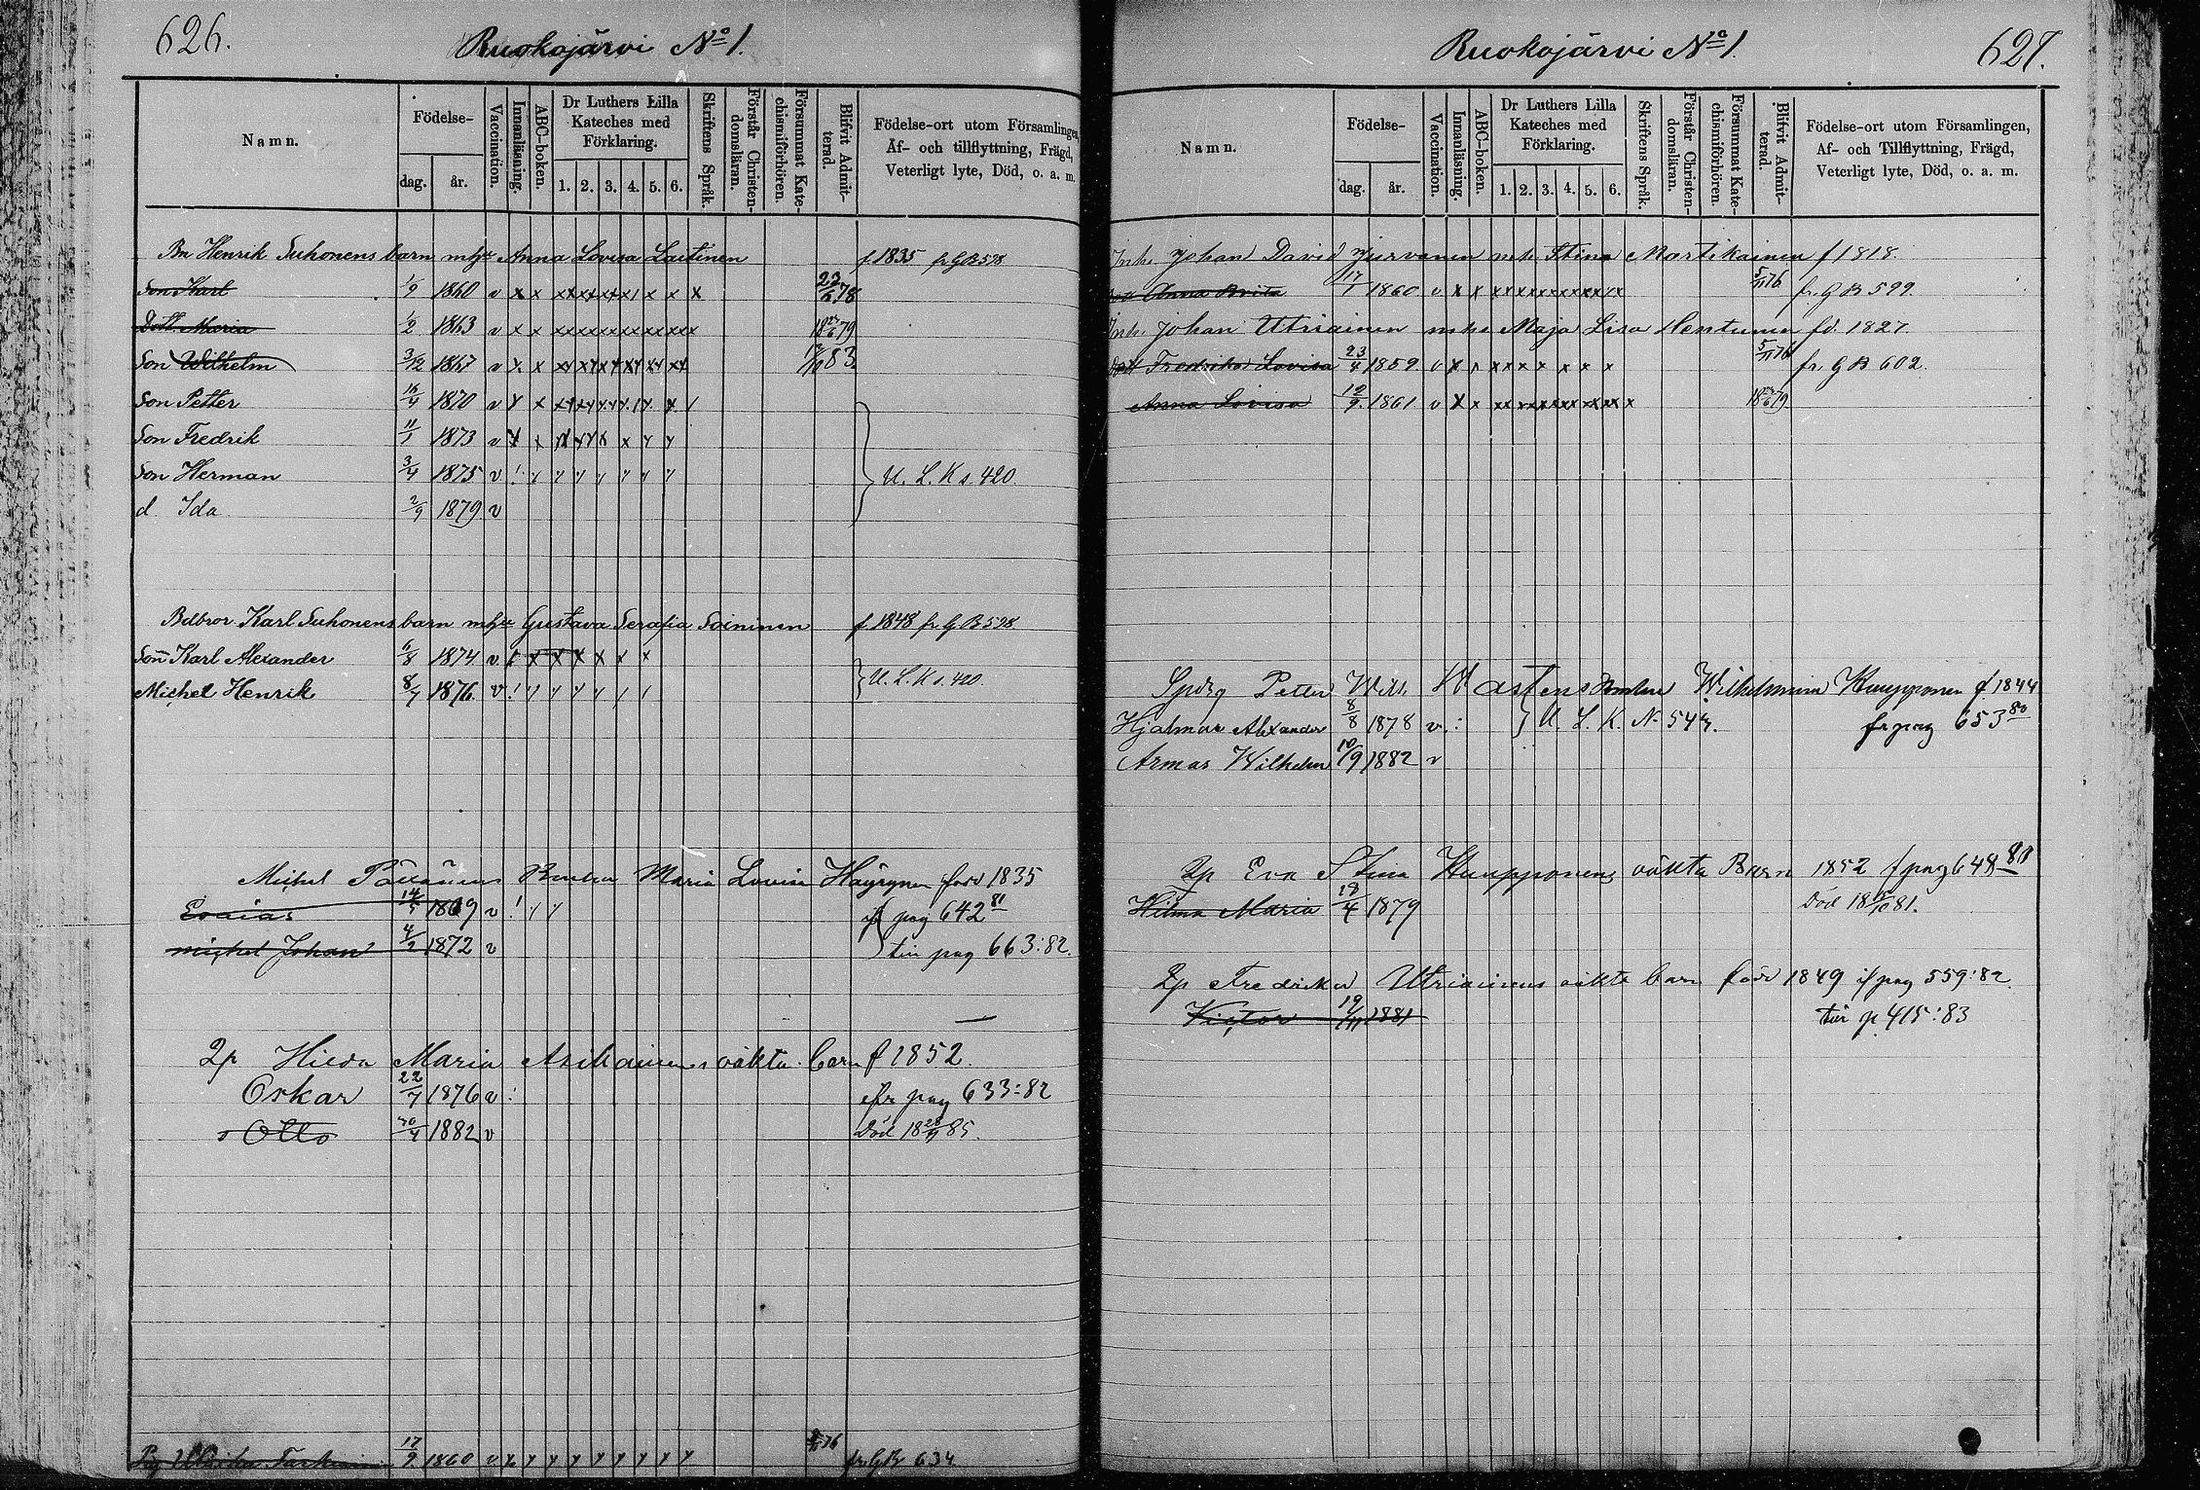 626.
Ruokojärvi No 1.
Namn.
Födelse-
dag.
år.
Vaccination.
Innanläsning.
ABC-boken.
Dr Luthers Lilla
Kateches med
Förklaring.
1. 2. 3. 4. 5. 6.
Skriftens Språk.
Förstår Christen-
domsläran.
Försummat Kate-
chismiförhören.
Blifvit Admit-
terad.
Födelse-ort utom Församlingen,
Af- och tillflyttning, Frägd,
Veterligt lyte, Död, o. a. m.
Bn Henrik Suhonens barn m hu Anna Lovisa Laitinen f. 1835 fr. G B 578
Son Karl 1/9 1860 v x x x x x x x x x x x 22/6 78
Dott. Maria 1/2 1863 v x x x x x x x x x x x x 18 6 79
Son Wilhelm 3/12 1867 v x x x x x x x x 83.
Son Petter 16/4 1870 v
Son Fredrik 11/1 1873 v
Son Herman 3/4 1875 v U. L. K s. 420.
d. Ida 2/9 1879 v
Bdbror Karl Suhonens barn m hu Gustava Serafia Soininen f. 1848 fr. G B 598
Son Karl Alexander 11/8 1874 v x x x x x x
Michel Henrik 8/7 1876 v U. L. K s. 420.
Michel Barn Maria Lovisa Häyrynen född 1835
Esaias 14/5 1869 v if pag 642 81
Michel Johan 4/2 1872 v till pag 663:82.
Qp Hilda Maria oäkta barn f 1852.
Oskar 22/7 1876 v fr pag 633:82
s Otto 30/4 1882 v Död 18 28/9 85.
17/9 1860 v 76 fr. G B 634
627.
Ruokojärvi No 1.
Namn.
Födelse-
dag.
år.
Vaccination.
Innanläsning.
ABC-boken.
Dr Luthers Lilla
Kateches med
Förklaring.
1. 2. 3. 4. 5. 6.
Skriftens Språk.
Förstår Christen-
domsläran.
Försummat Kate-
chismiförhören.
Blifvit Admit-
terad.
Födelse-ort utom Församlingen,
Af- och Tillflyttning, Frägd,
Veterligt lyte, Död, o. a. m.
Inh. Johan David m. h. Stina Martikainen f 1818.
Dott Anna Brita 17/1 1860 v x x x x x x x x x x x 5/11 76 fr. G B 599.
Inh. Johan Utriainen m. h. Maja Lisa Hentunen fd. 1827.
Dott Fredrika Lovisa 23/4 1859 v x x x x x x x x 5/11 76 fr. G B 602.
Anna Lovisa 12/9 1861 v x x x x x x x x x x x 18 6 79
Petter Wilh. Wilhelmina Kuupponen f. 1844
Hjalmar Alexander 8/8 1878 v U. L. K. N. 547. fr pag 653 80
Armas Wilhelm 10/9 1882 v
Qp Eva Stina Kuupponens oäkta Barn 1852 f pag 648 80
Hilma Maria 18/4 1879 Död 18 81.
Qp Fredrika Utriainens oäkta barn född 1849 if pag 559:82.
Victor 19/11 1881 till p 415:83